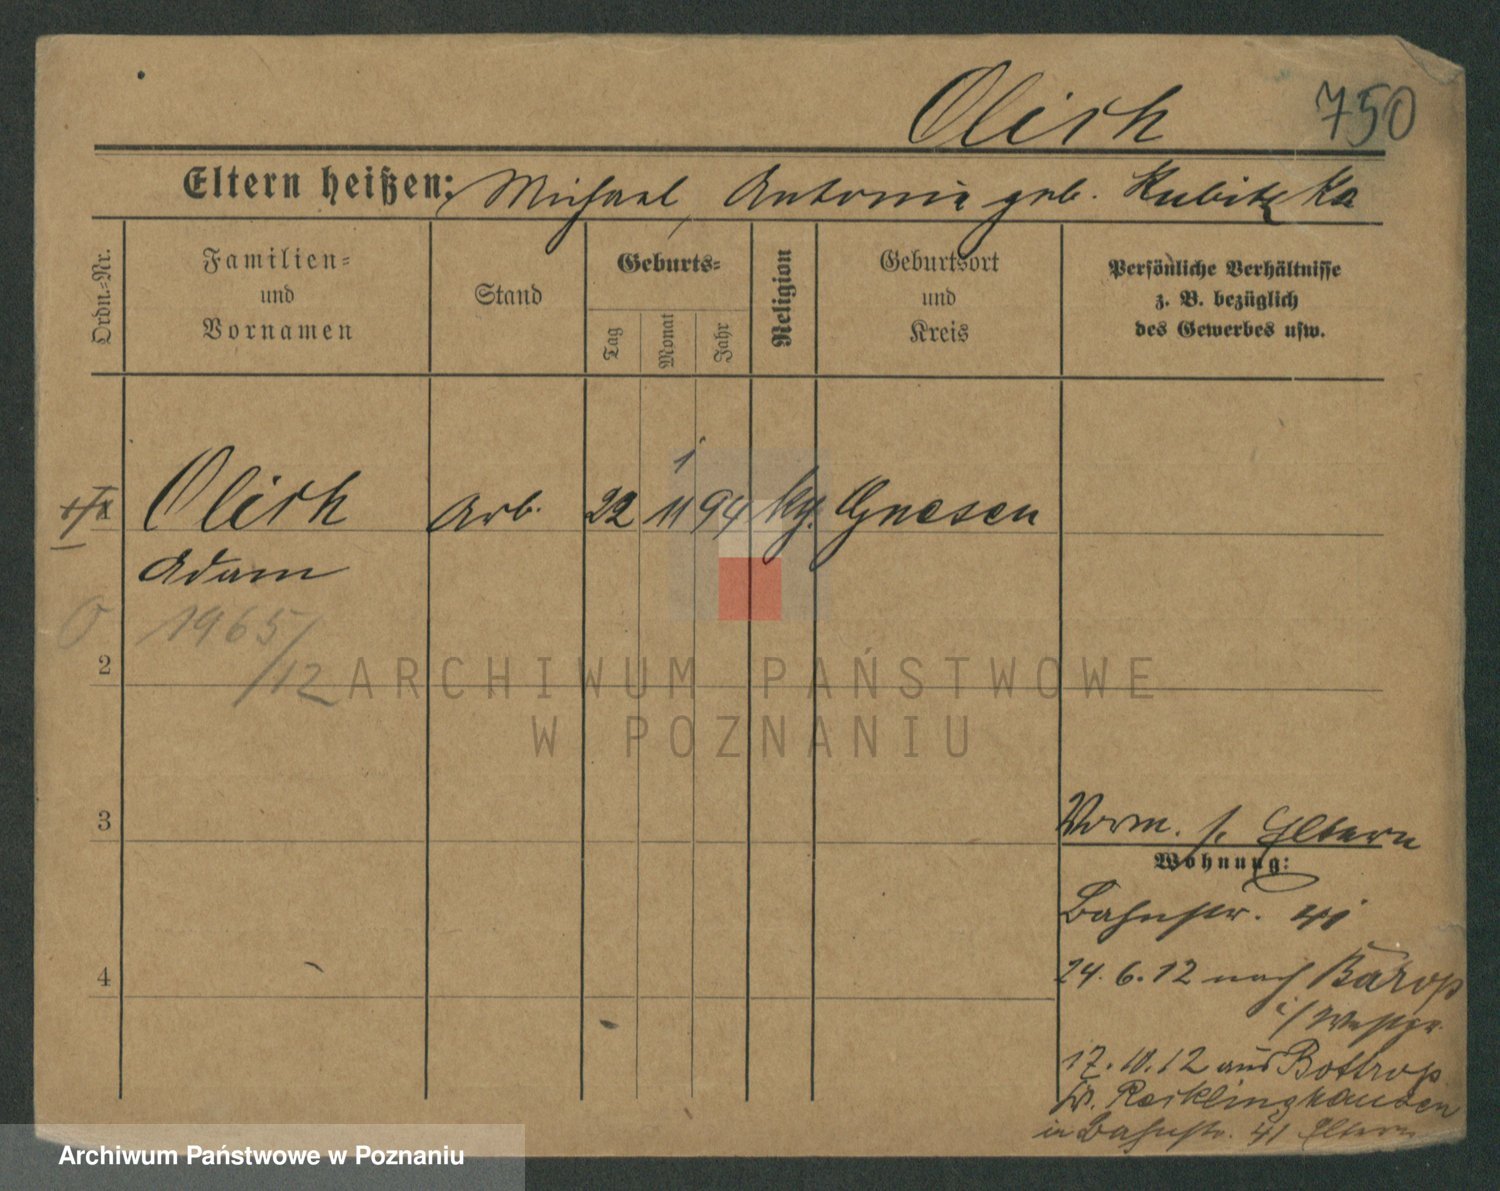 Olish
750
Eltern heißen: Michael, Antonie geb. Kubitzka
Ordn.-Nr.
Familien-
und
Vornamen
Stand
Geburts-
Tag
Monat
Jahr
Religion
Geburtsort
und
Kreis
Persönliche Verhältnisse
z. B. bezüglich
des Gewerbes usw.
1
Olish Arb. 22 11 94 Gnesen
Adam
1965/12
2
ARCHIWUM PAŃSTWOWE
W POZNANIU
3
Vorm. s. Eltern
Wohnung:
Bahnstr. 41
4
24. 6. 12 nach Barop
i/ Westf.
17. 10. 12 aus Bottrop
Kr. Recklinghausen
in Bahnstr. 41 Eltern
Archiwum Państwowe w Poznaniu